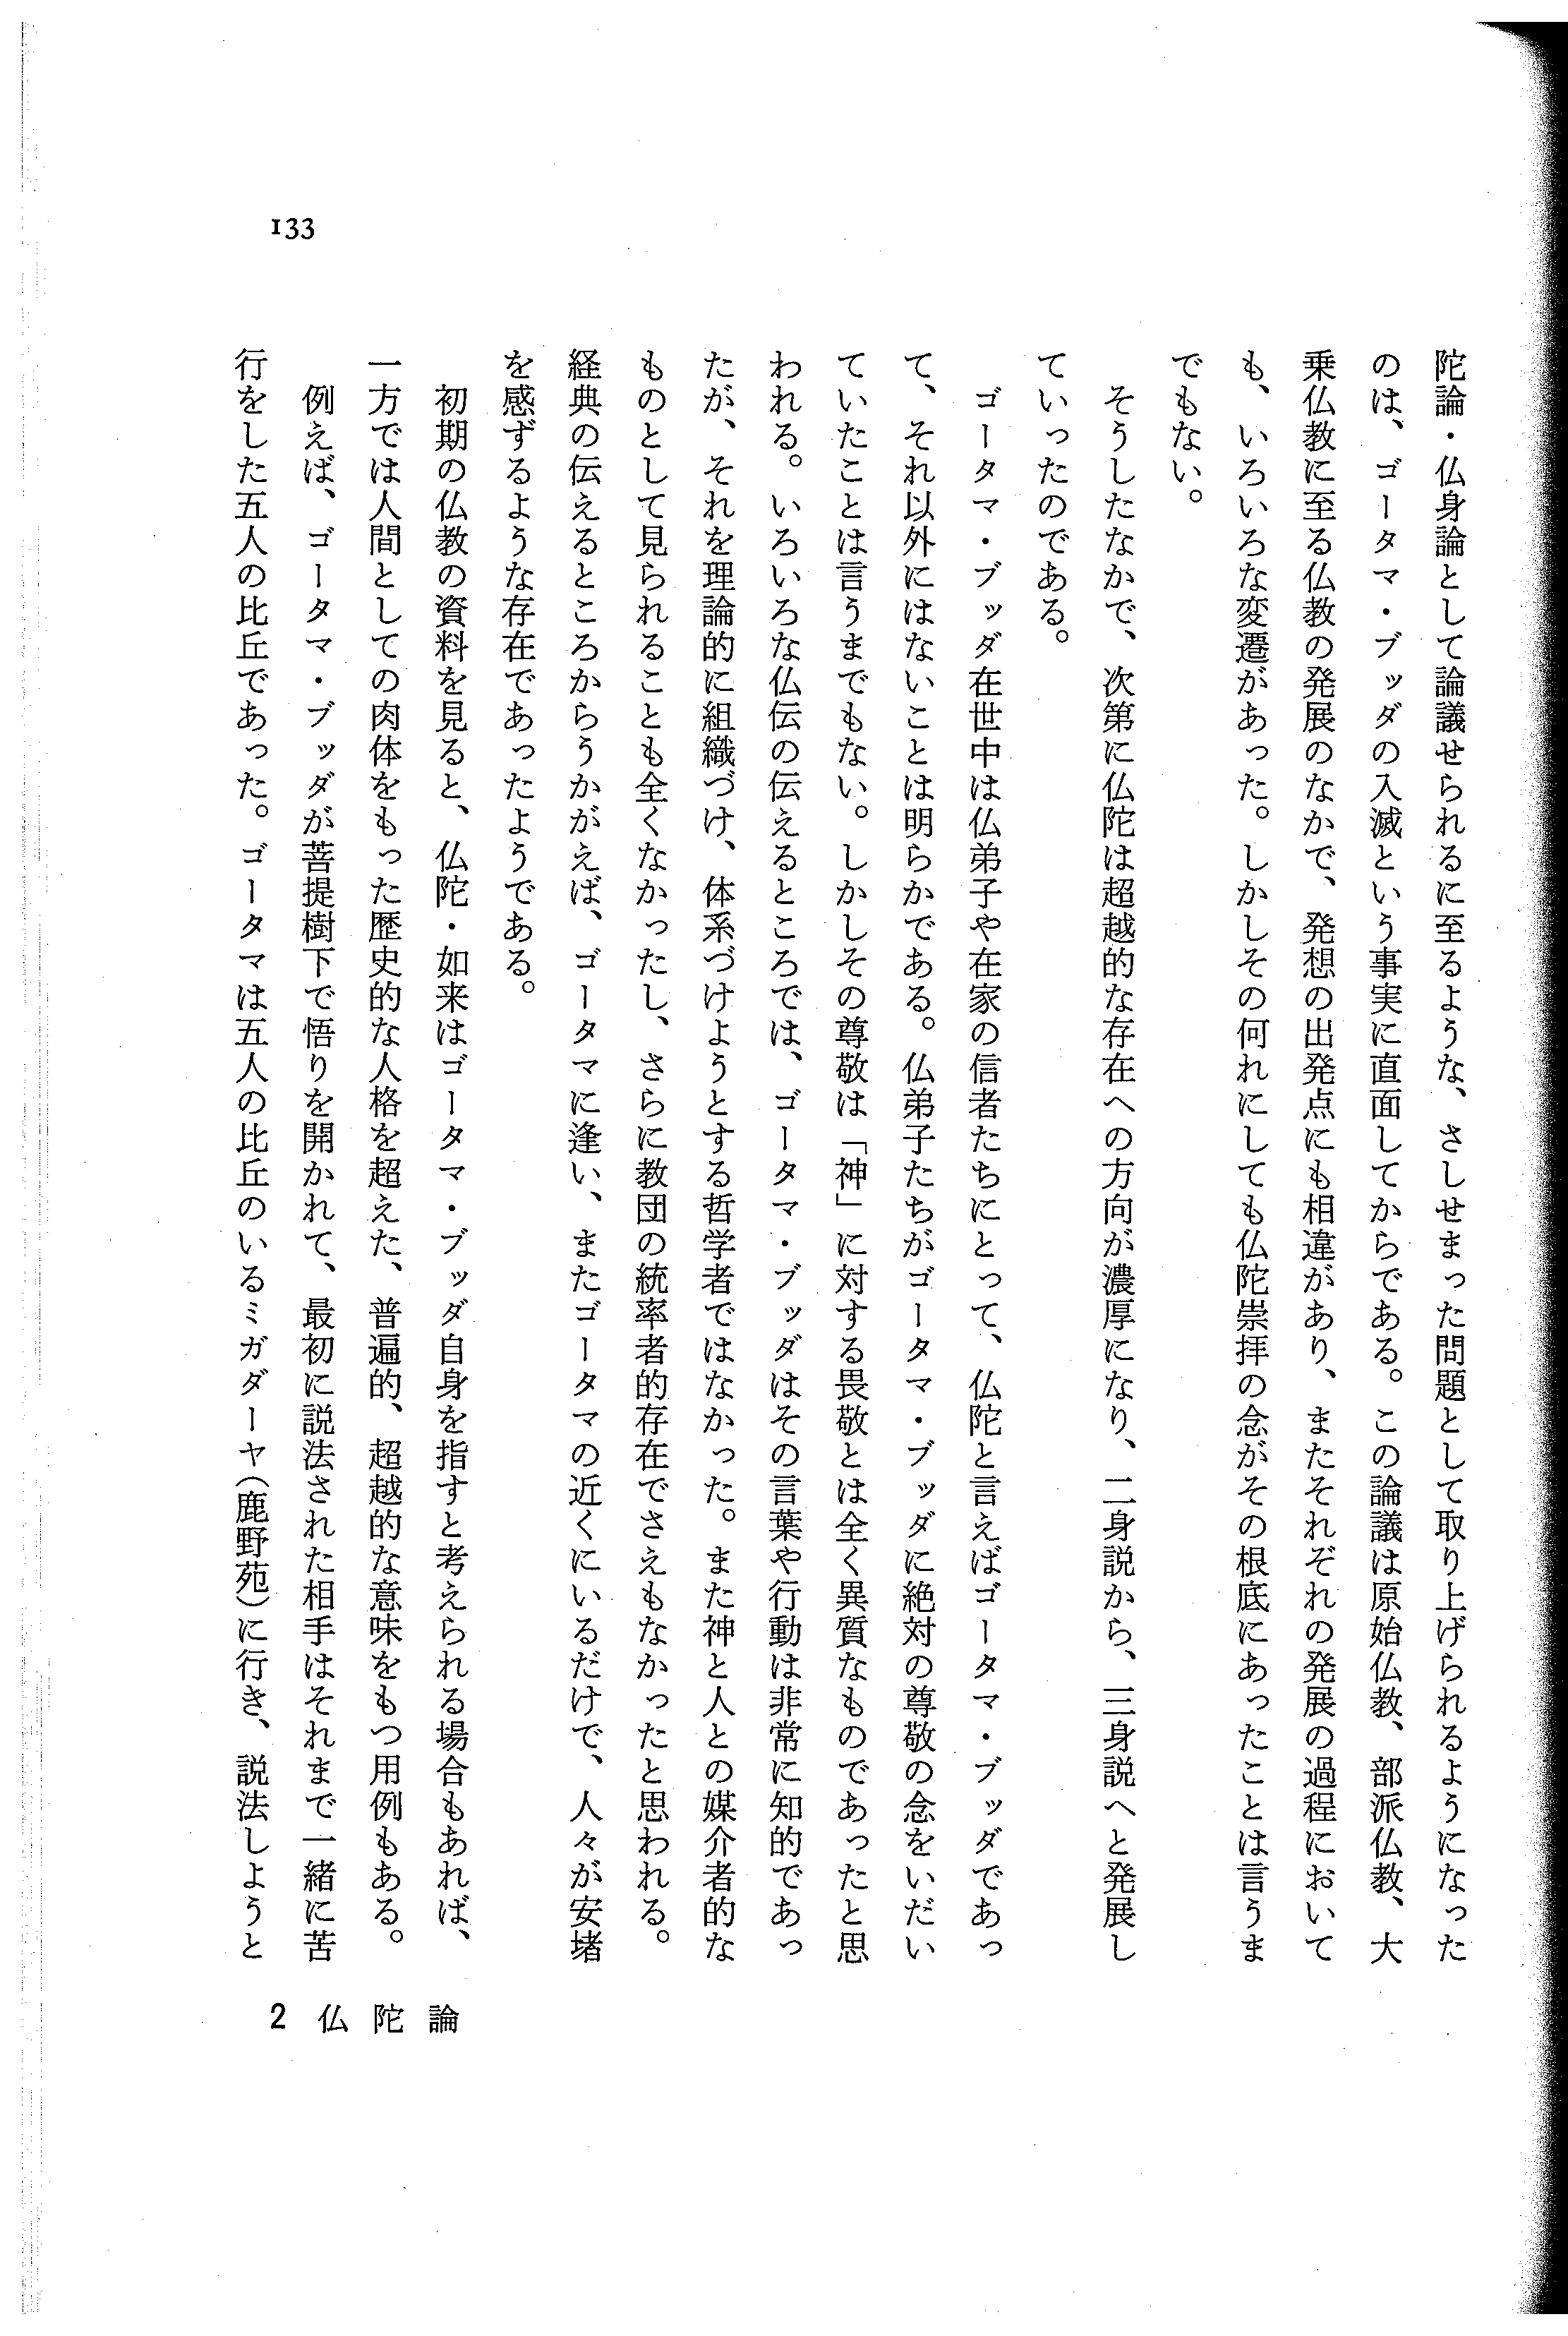 陀論・仏身論として論議せられるに至るような、さしせまった問題として取り上げられるようになった
のは、ゴータマ・ブッダの入滅という事実に直面してからである。この論議は原始仏教、部派仏教、大
乗仏教に至る仏教の発展のなかで、発想の出発点にも相違があり、またそれぞれの発展の過程において
も、いろいろな変遷があった。しかしその何れにしても仏陀崇拝の念がその根底にあったことは言うま
でもない。
そうしたなかで、次第に仏陀は超越的な存在への方向が濃厚になり、二身説から、三身説へと発展し
ていったのである。
ゴータマ・ブッダ在世中は仏弟子や在家の信者たちにとって、仏陀と言えばゴータマ・ブッダであっ
て、それ以外にはないことは明らかである。仏弟子たちがゴータマ・ブッダに絶対の尊敬の念をいだい
ていたことは言うまでもない。しかしその尊敬は「神」に対する畏敬とは全く異質なものであったと思
われる。いろいろな仏伝の伝えるところでは、ゴータマ・ブッダはその言葉や行動は非常に知的であっ
たが、それを理論的に組織づけ、体系づけようとする哲学者ではなかった。また神と人との媒介者的な
ものとして見られることも全くなかったし、さらに教団の統率者的存在でさえもなかったと思われる。
経典の伝えるところからうかがえば、ゴータマに逢い、またゴータマの近くにいるだけで、人々が安堵
を感ずるような存在であったようである。
初期の仏教の資料を見ると、仏陀・如来はゴータマ・ブッダ自身を指すと考えられる場合もあれば、
一方では人間としての肉体をもった歴史的な人格を超えた、普遍的、超越的な意味をもつ用例もある。
例えば、ゴータマ・ブッダが菩提樹下で悟りを開かれて、最初に説法された相手はそれまで一緒に苦
行をした五人の比丘であった。ゴータマは五人の比丘のいるミガダーヤ（鹿野苑）に行き、説法しようと
133
2 仏陀論